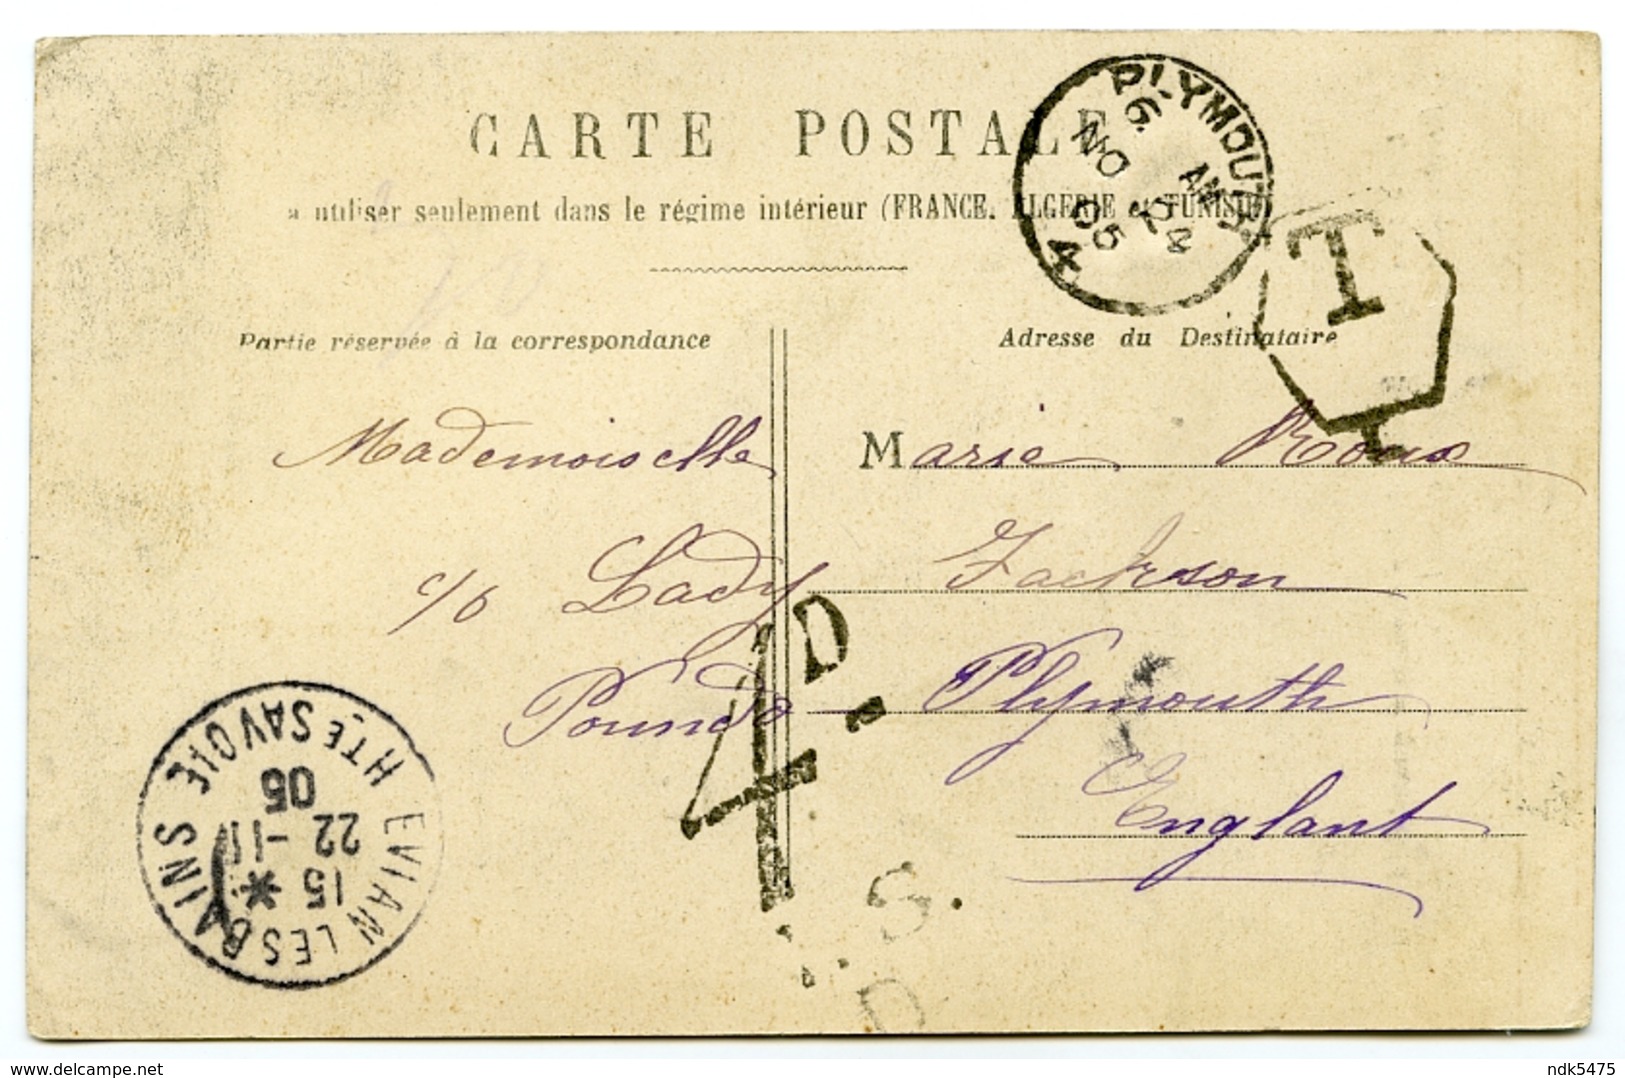 CARTE POSTALE
à utiliser seulement dans le régime intérieur (FRANCE, ALGÉRIE et TUNISIE)
Partie réservée à la correspondance
Adresse du Destinataire
PLYMOUTH
NO 24
05
4
T
Mademoiselle Marie Roux
c/o Lady Jackson
Pounds Plymouth
Englant
4D
EVIAN LES BAINS
HTE SAVOIE
15
22 -11
05
www.delcampe.net
ndk5475